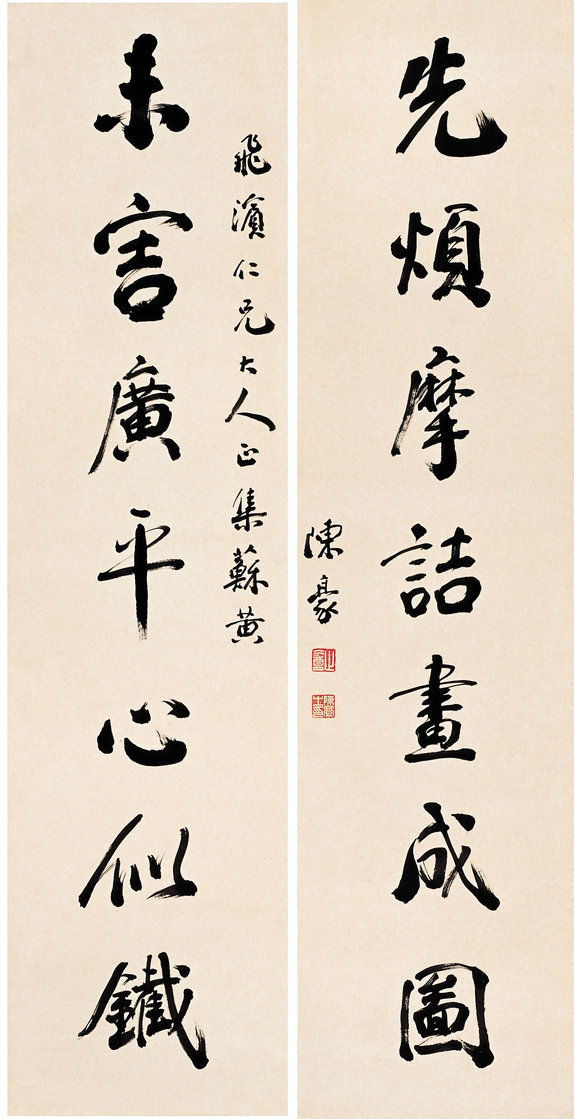 先煩摩詰畫成圖
陳豪
飛濱仁兄大人正集蘇黃
未害廣平心似鐵